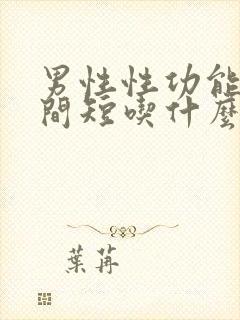 男性性功能
間短喫什麼
葉苒